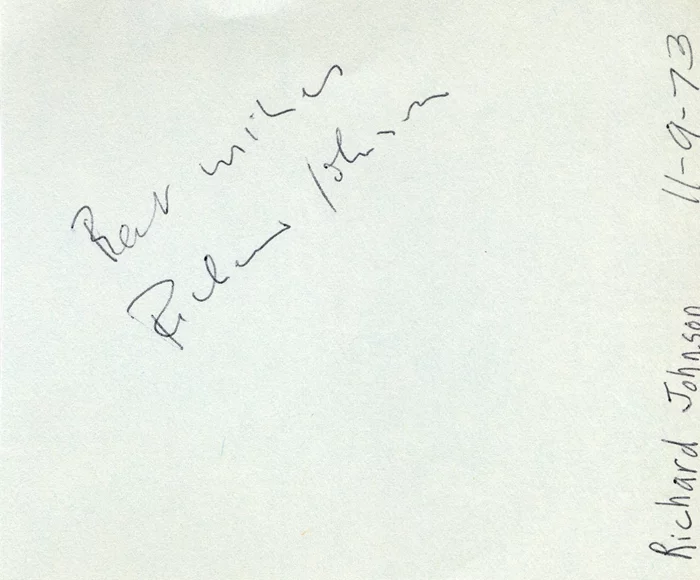 Best wishes
Richard Johnson
Richard Johnson 11-9-73